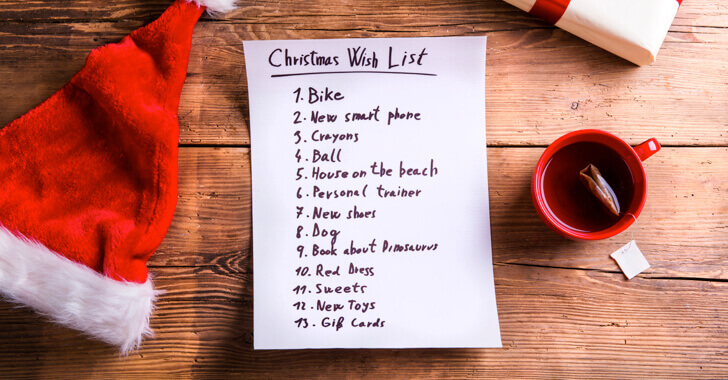 Christmas Wish List
1. Bike
2. New smart phone
3. Crayons
4. Ball
5. House on the beach
6. Personal trainer
7. New shoes
8. Dog
9. Book about Dinosaurus
10. Red Dress
11. Sweets
12. New Toys
13. Gift Cards